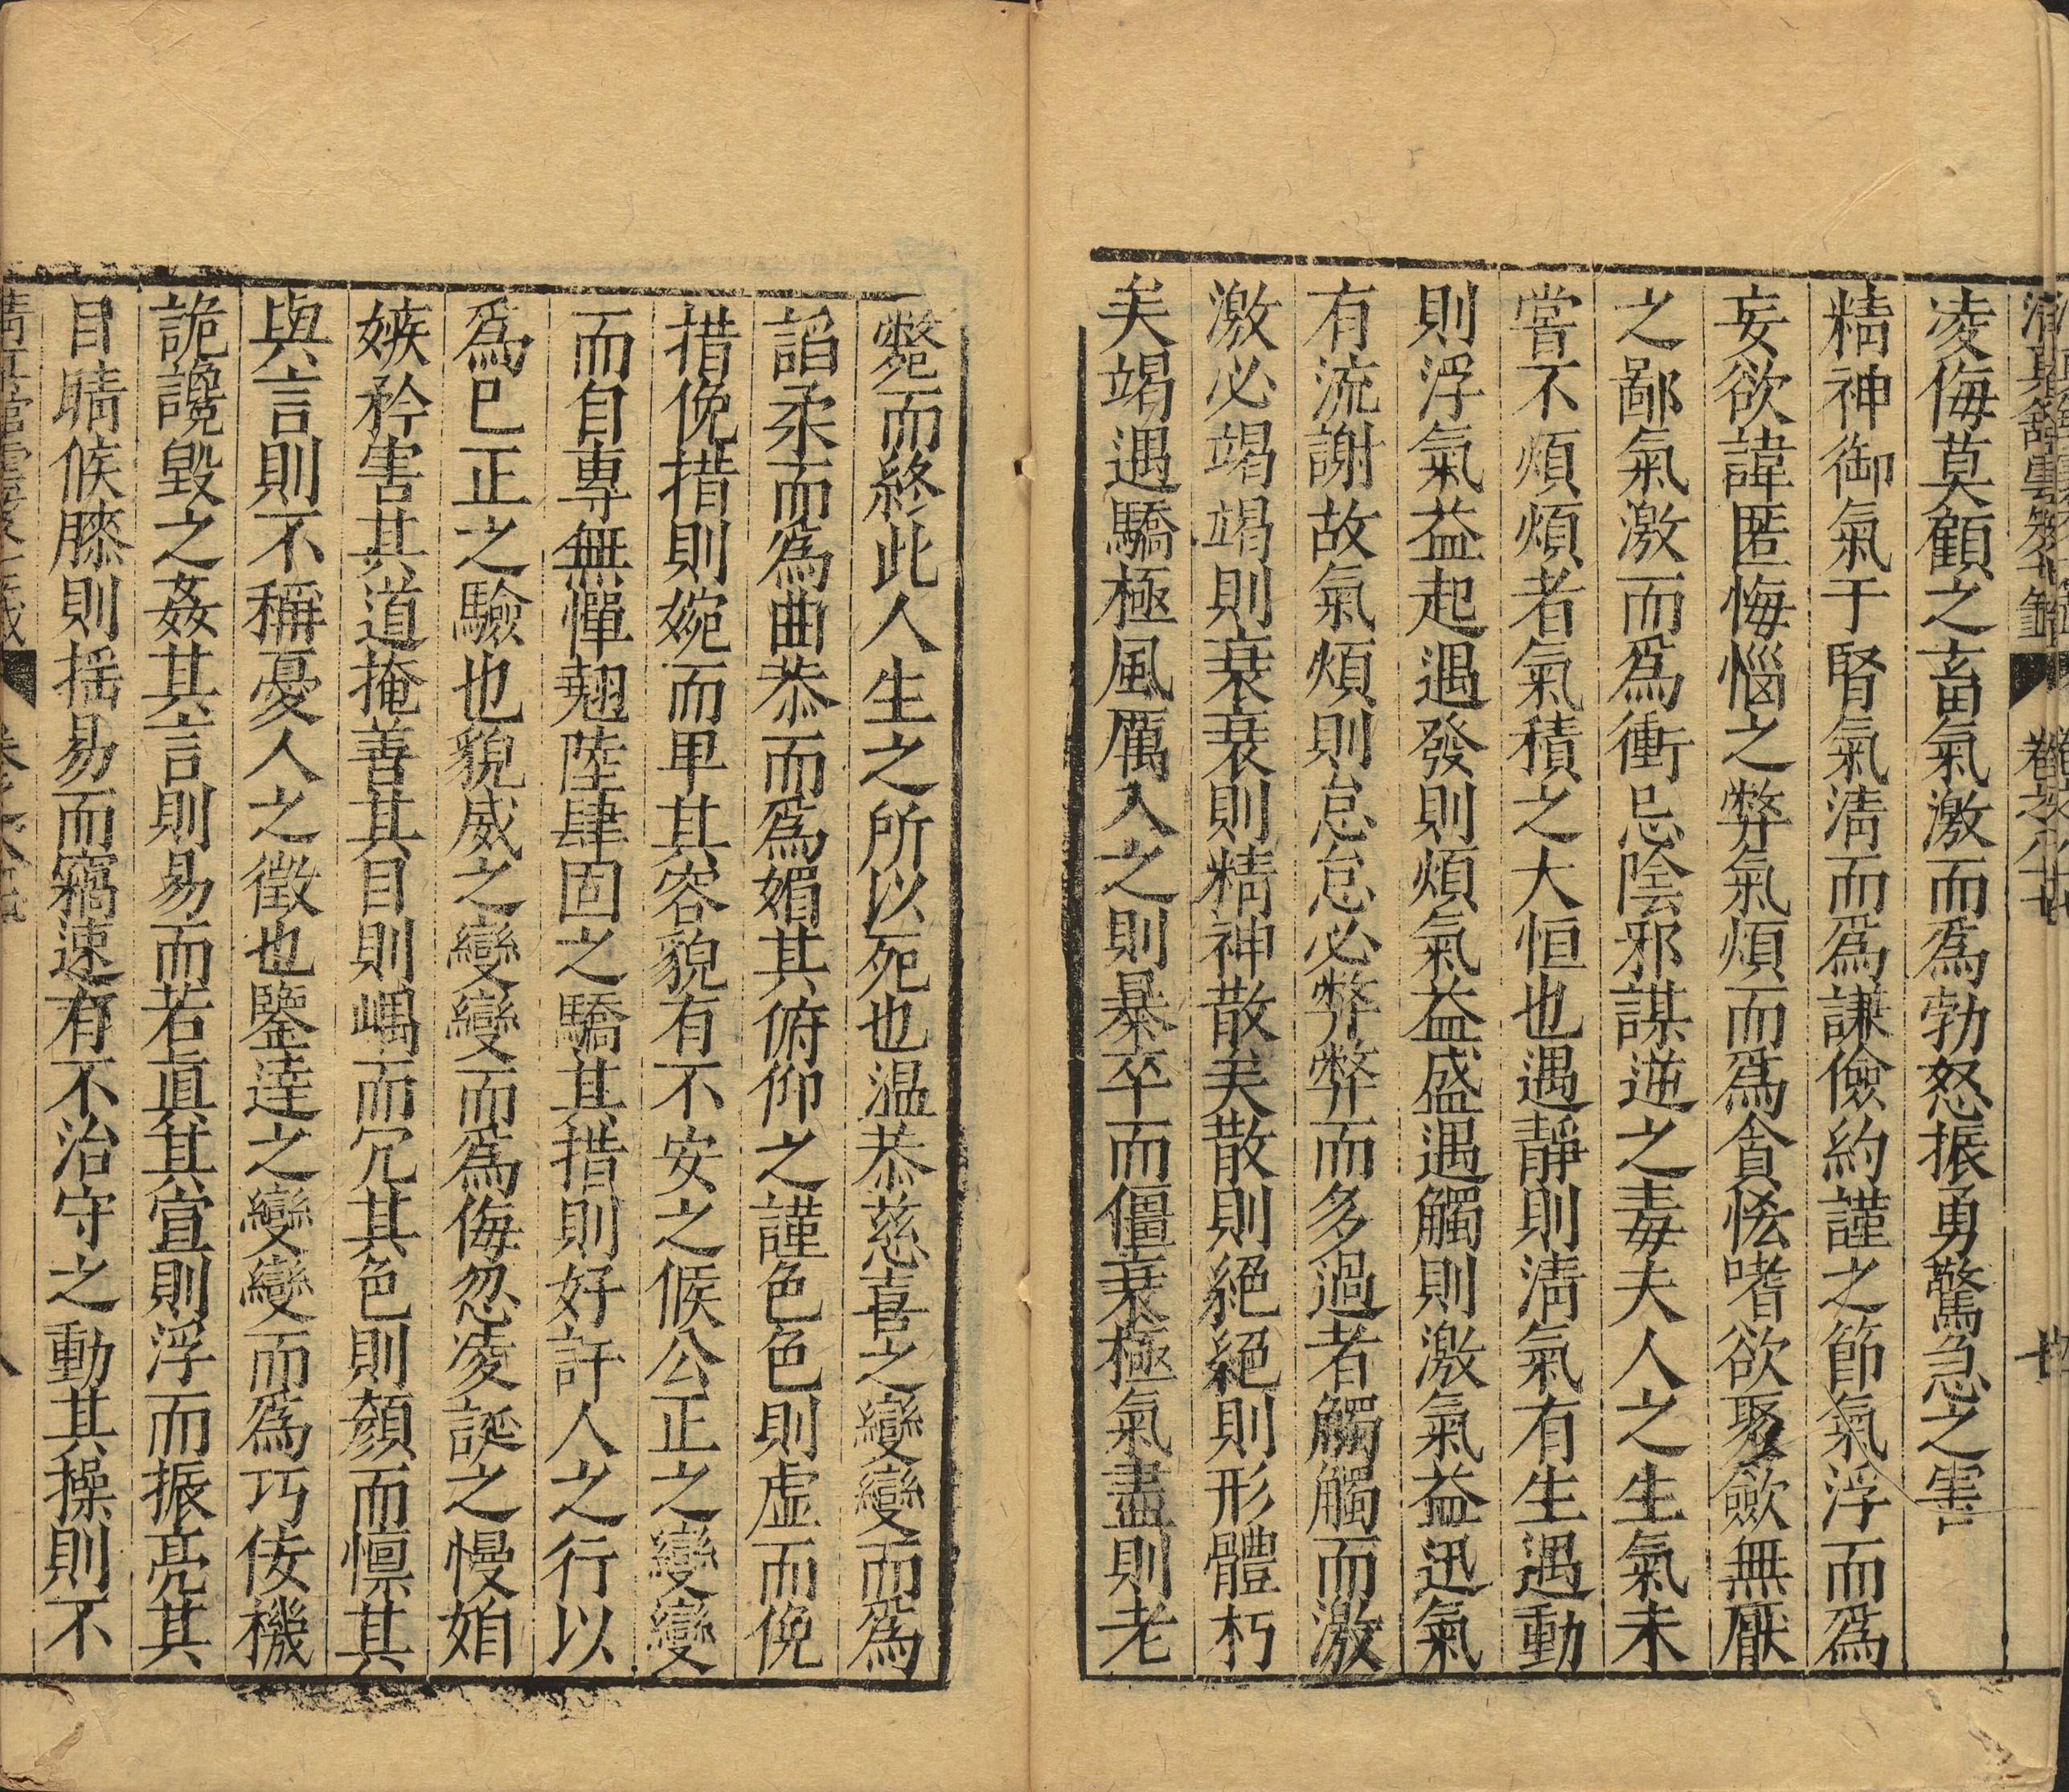 凌侮莫顧之畜氣激而爲勃怒振勇驚急之害
精神御氣于腎氣淸而爲謙儉約謹之節氣浮而爲
妄欲諱匿悔惱之弊氣煩而爲貪恡嗜欲聚斂無厭
之鄙氣激而爲衝忌陰邪謀逆之毒夫人之生氣未
嘗不煩煩者氣積之大恒也遇靜則淸氣有生遇動
則浮氣益起遇發則煩氣益盛遇觸則激氣益迅氣
有流謝故氣煩則怠怠必弊弊而多過者觸觸而激
激必竭竭則衰衰則精神散矣散則絕絕則形體朽
矣竭遇驕極風厲入之則暴卒而僵衰極氣盡則老
斃而終此人生之所以死也温恭慈喜之變變而爲
諂柔而爲曲恭而爲媚其俯仰之謹色色則虛而俛
措俛措則婉而卑其容貌有不安之候公正之變變
而自專無憚翹陸肆固之驕其措則好訐人之行以
爲已正之驗也貌威之變變而爲侮忽凌誕之慢媢
嫉矜害其道掩善其目則嵎而冗其色則顏而懍其
與言則不稱憂人之徵也鑒達之變變而爲巧佞機
詭讒毀之姦其言則易而若眞其宣則浮而振亮其
目睛候睞則揺易而竊速有不治守之動其操則不